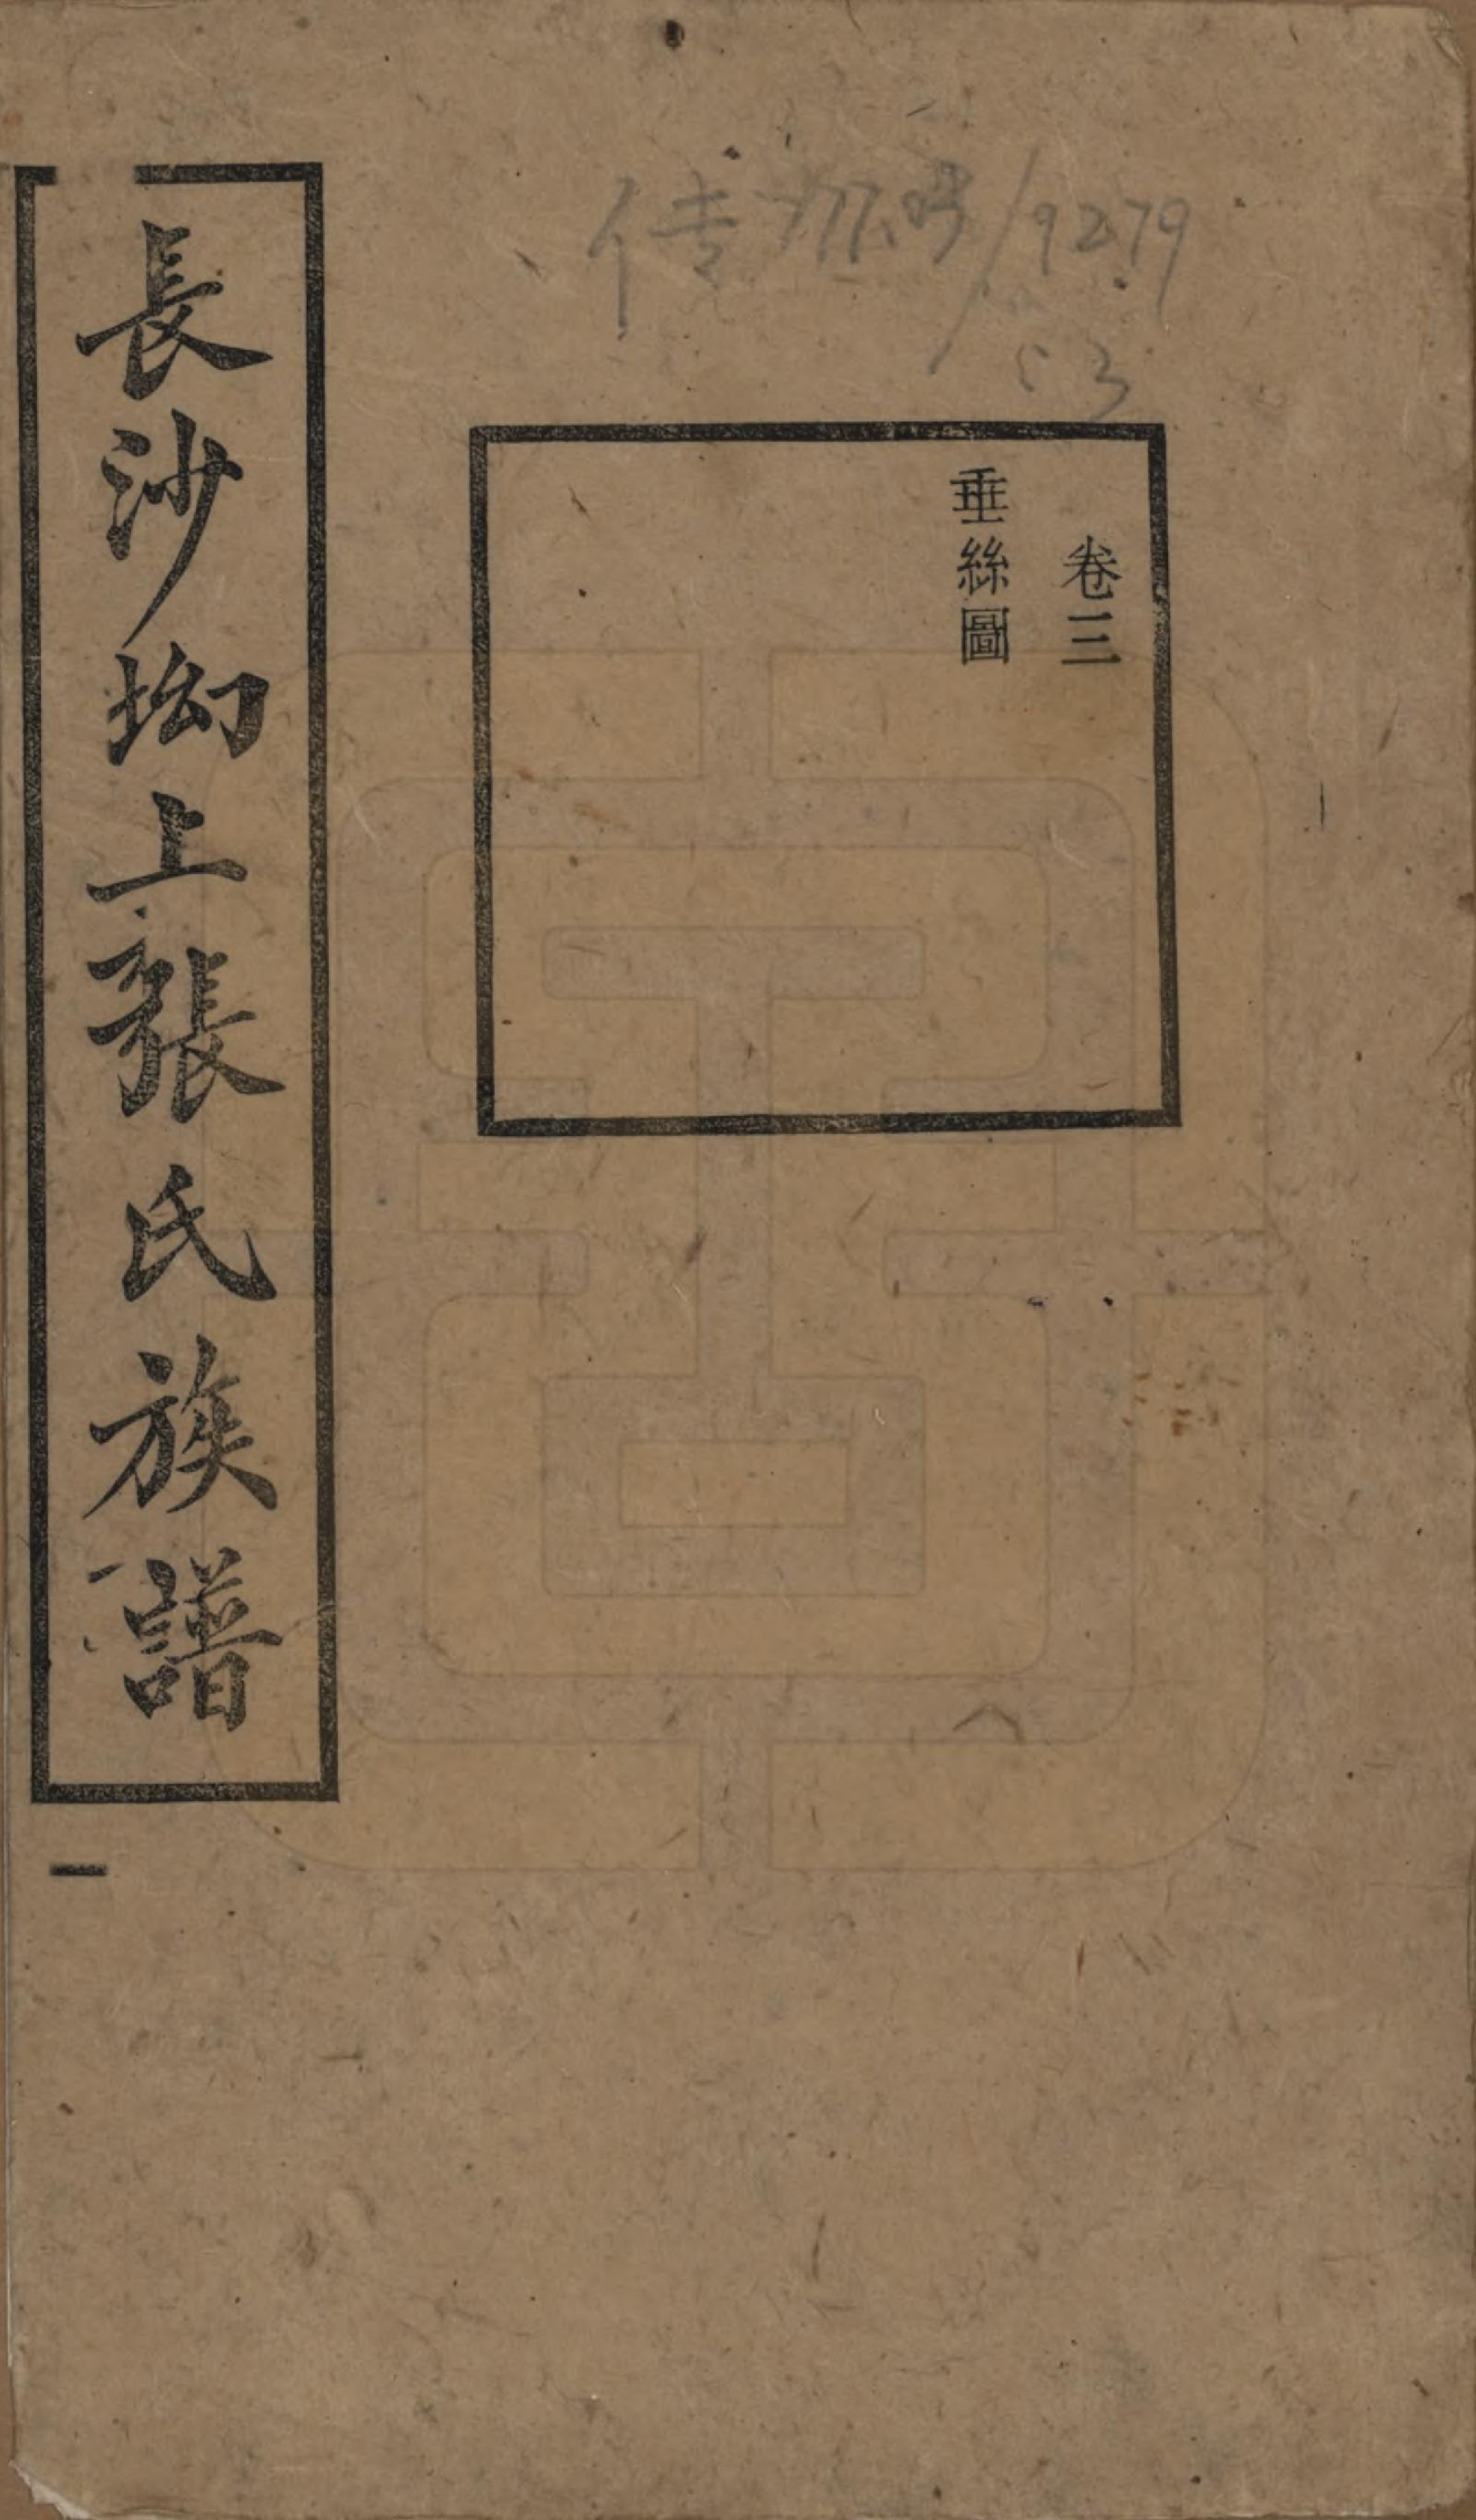 卷三
垂絲圖
長沙坳上張氏族譜
一
/9279